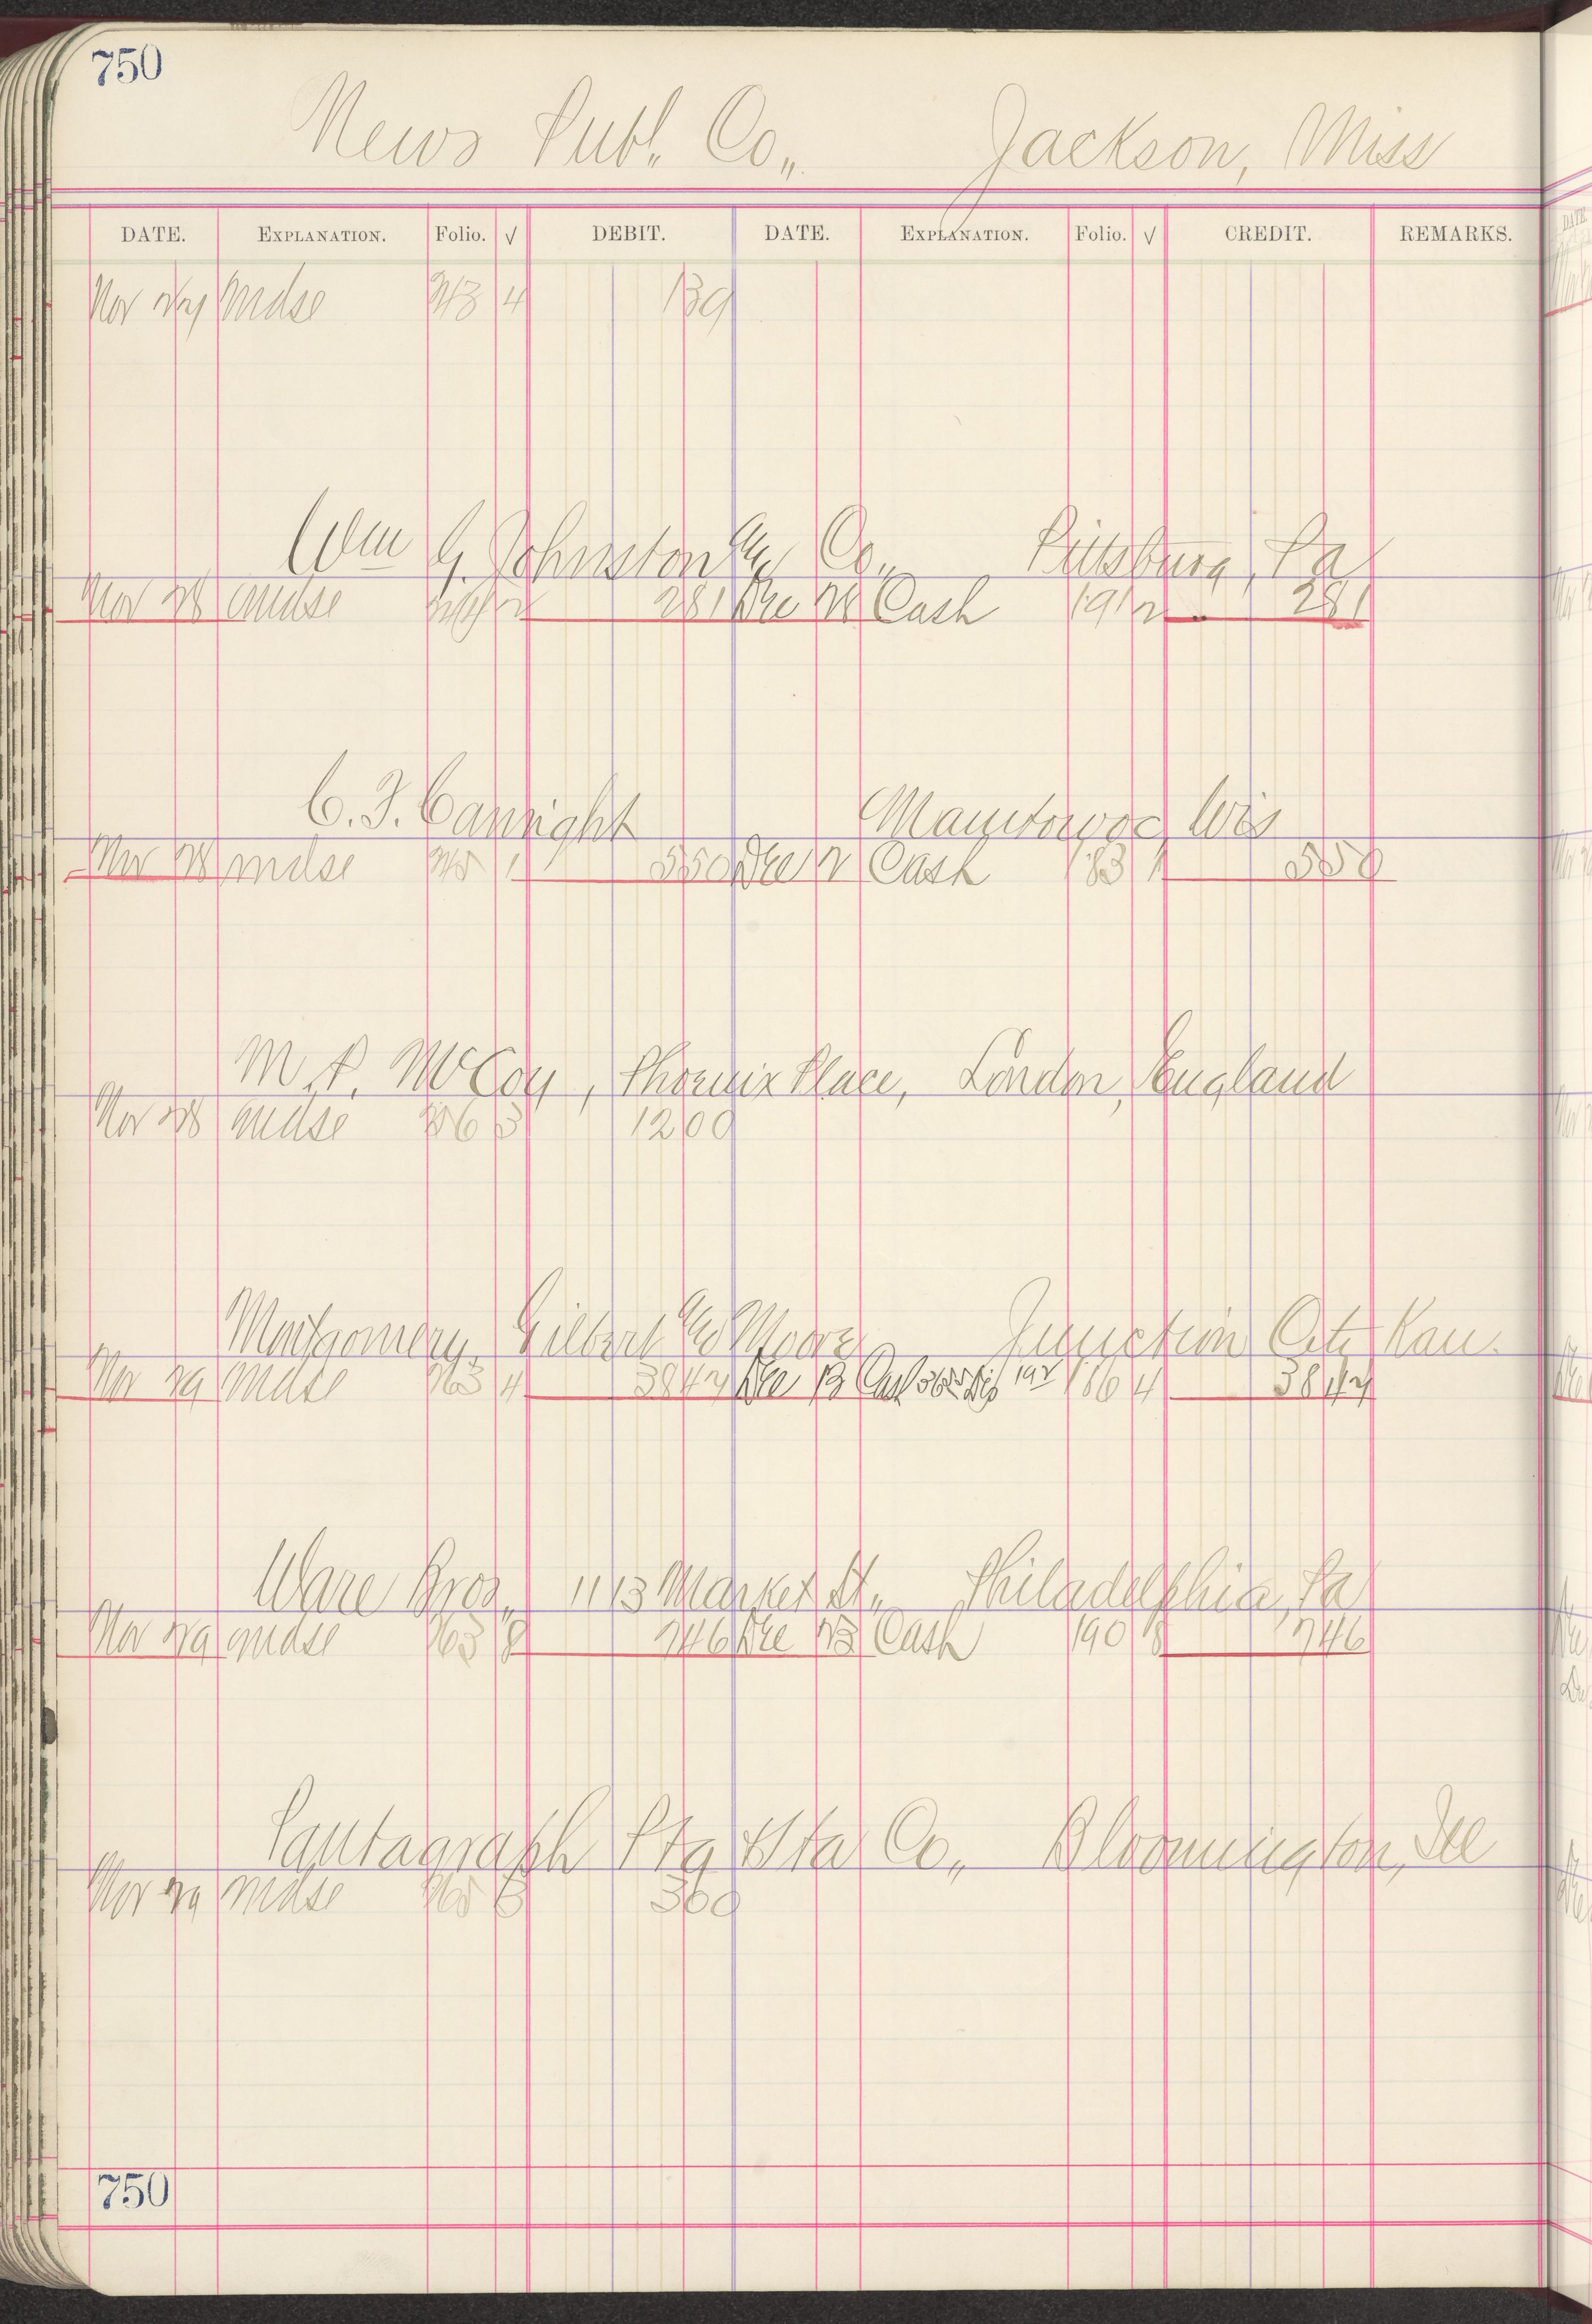 750
News Publ. Co., Jackson, Miss
DATE. EXPLANATION. Folio. √ DEBIT. DATE. EXPLANATION. Folio. √ CREDIT. REMARKS.
Nov 27 Mdse 4 139
Wm G. Johnston & Co., Pittsburg, Pa
Nov 28 Mdse 2 281 Dec 28 Cash 191 2 281
C. F. Canright Manitowoc, Wis
Nov 28 Mdse 1 550 Dec 12 Cash 183 1 550
M. P. McCoy, Phoenix Place, London, England
Nov 28 Mdse 1200
Montgomery, Gilbert & Moore Junction City Kan.
Nov 29 Mdse 4 3842 Dec 13 Cash 186 4 3842
Ware Bros., 1113 Market St., Philadelphia, Pa
Nov 29 Mdse 8 746 Dec 23 Cash 190 8 746
Pantagraph Ptg & Sta Co., Bloomington, Ill
Nov 29 Mdse 360
750